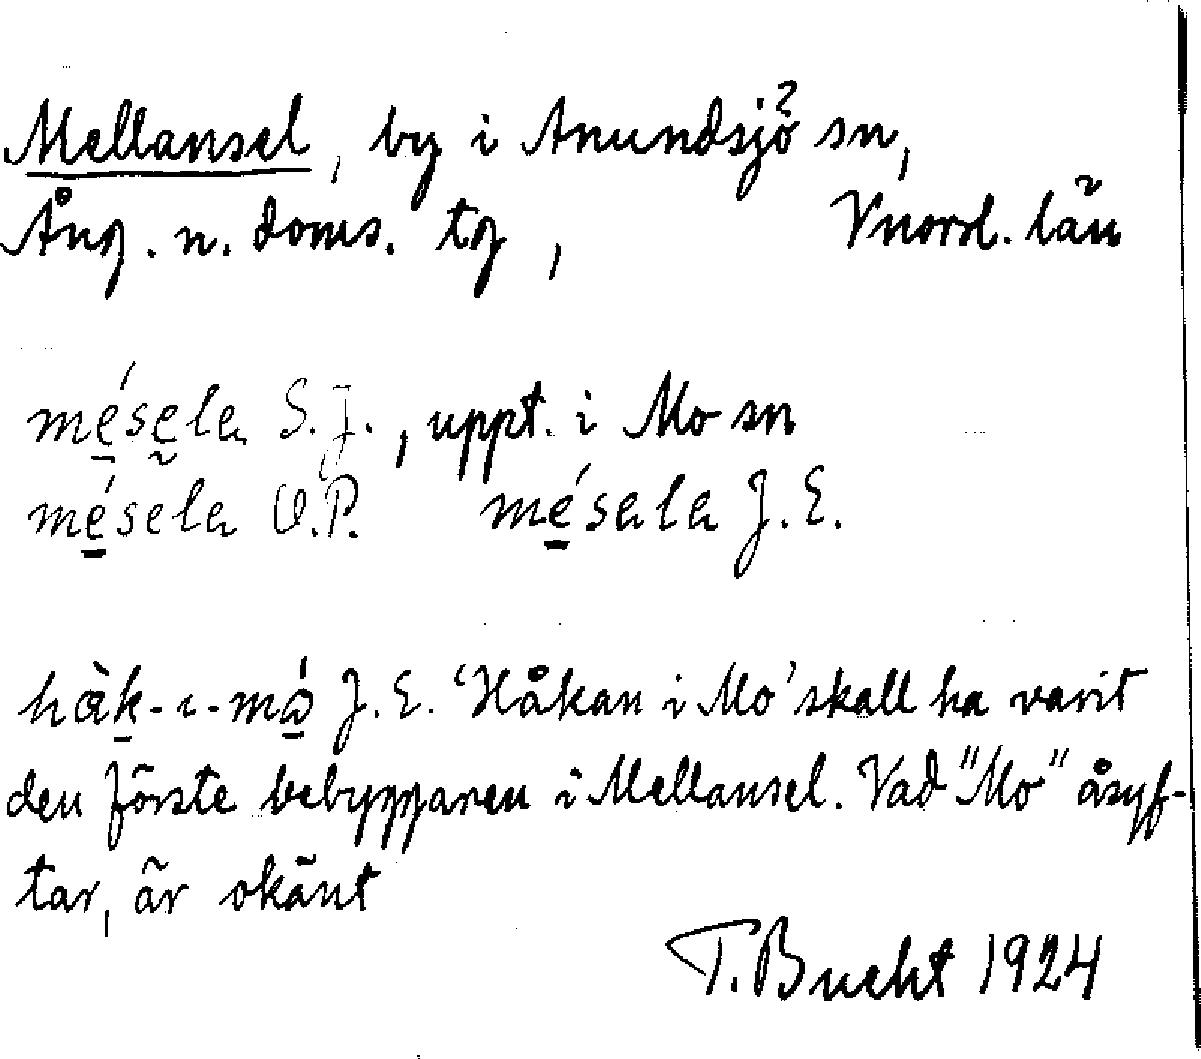 Mellansel, by i Anundsjö sn,
Ång. n. doms. tg, Vnorrl. län
mé̱se̮la S.J., uppt. i Mo sn
mé̱sela O.P. mé̱sala J.E.
hàḵ-ı-mó̱ J.E. 'Håkan i Mo' skall ha varit
den förste bebyggaren i Mellansel. Vad "Mo" åsyf-
tar, är okänt
T. Bucht 1924